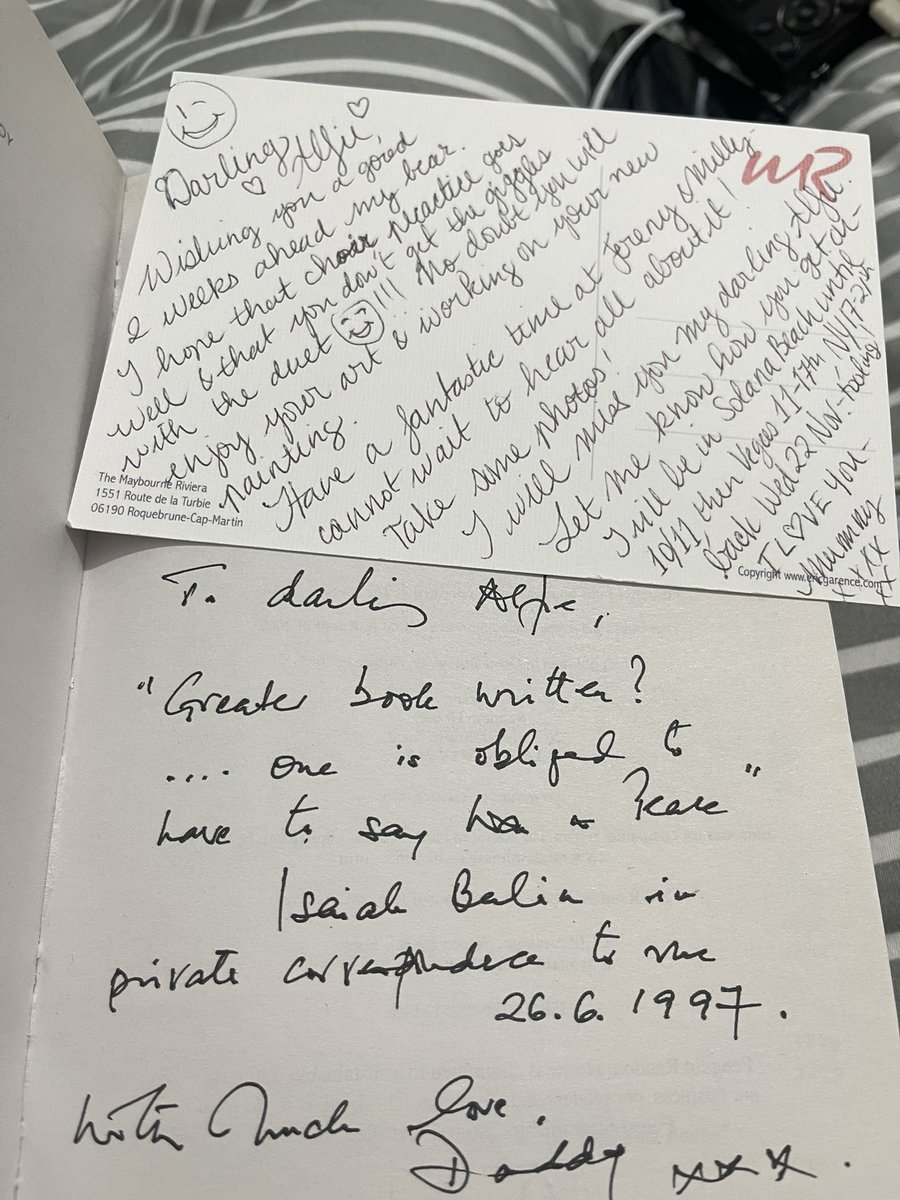 Darling Alfie,
Wishing you a good
2 weeks ahead my bear.
I hope that choir practice goes
well & that you don't get the giggles
with the duet !!! No doubt you will
enjoy your art & working on your new
painting.
Have a fantastic time at Jeremy & Milly-
cannot wait to hear all about it!
Take some photos!
I will miss you my darling Alfie.
Let me know how you get on-
I will be in Solana Beach until
10/11 then Vegas 11-17th NY 17-21st
back Wed 22 Nov.-
I L♡VE YOU-
Mummy
xxx
MR
The Maybourne Riviera
1551 Route de la Turbie
06190 Roquebrune-Cap-Martin
Copyright www.ericgarence.com
To darling Alfie,
"Greater book written?
.... one is obliged to
have to say Peace"
Isaiah Berlin in
private correspondence to me
26.6.1997.
With Much love,
Daddy xxx.